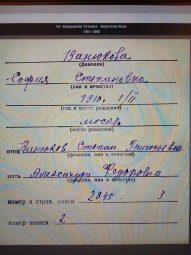 Ванюкова
(фамилия)
София Степановна
(имя и отчество)
1910. 1/II
(год и место рождения)
Москва
(место рождения)
отец Ванюков Степан Григорьевич
(фамилия, имя и отчество)
мать Александра Федоровна
(фамилия, имя и отчество)
номер и страниц книги 2845. 3
номер записи 2